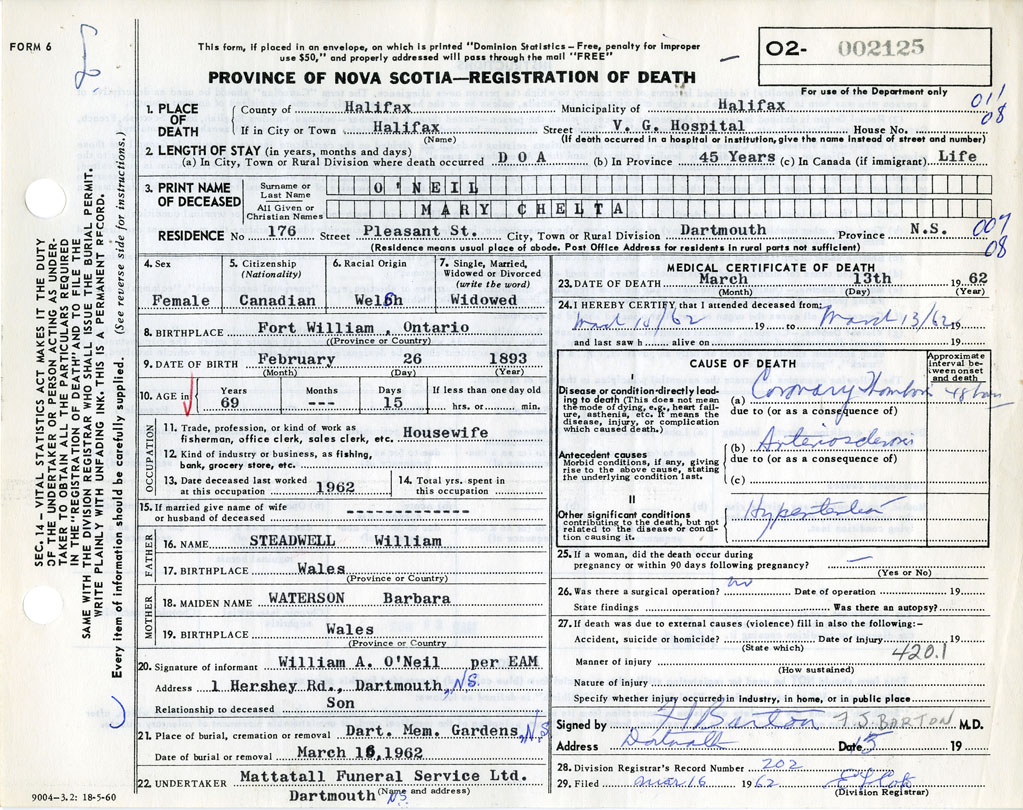 FORM 6
This form, if placed in an envelope, on which is printed "Dominion Statistics – Free, penalty for improper
use $50," and properly addressed will pass through the mail "FREE"
O2- 002125
For use of the Department only
PROVINCE OF NOVA SCOTIA—REGISTRATION OF DEATH
011
08
1. PLACE OF DEATH
County of Halifax Municipality of Halifax
If in City or Town Halifax Street V. G. Hospital House No.
(Name) (If death occurred in a hospital or institution, give the name instead of street and number)
2. LENGTH OF STAY (in years, months and days)
(a) In City, Town or Rural Division where death occurred D O A (b) In Province 45 Years (c) In Canada (if immigrant) Life
3. PRINT NAME OF DECEASED
Surname or Last Name O'NEIL
All Given or Christian Names MARY CHELTA
RESIDENCE No 176 Street Pleasant St. City, Town or Rural Division Dartmouth Province N.S.
(Residence means usual place of abode. Post Office Address for residents in rural parts not sufficient)
007
08
4. Sex
Female
5. Citizenship
(Nationality)
Canadian
6. Racial Origin
Welsh
7. Single, Married,
Widowed or Divorced
(write the word)
Widowed
8. BIRTHPLACE Fort William, Ontario
((Province or Country)
9. DATE OF BIRTH February 26 1893
(Month) (Day) (Year)
10. AGE in
Years Months Days If less than one day old
69 --- 15 hrs. or min.
OCCUPATION
11. Trade, profession, or kind of work as
fisherman, office clerk, sales clerk, etc. Housewife
12. Kind of industry or business, as fishing,
bank, grocery store, etc.
13. Date deceased last worked
at this occupation 1962
14. Total yrs. spent in
this occupation
15. If married give name of wife
or husband of deceased
FATHER
16. NAME STEADWELL William
17. BIRTHPLACE Wales
(Province or Country)
MOTHER
18. MAIDEN NAME WATERSON Barbara
19. BIRTHPLACE Wales
(Province or Country
20. Signature of informant William A. O'Neil per EAM
Address 1 Hershey Rd., Dartmouth, N.S.
Relationship to deceased Son
21. Place of burial, cremation or removal Dart. Mem. Gardens, N.S.
Date of burial or removal March 16, 1962
22. UNDERTAKER Mattatall Funeral Service Ltd.
(Name and address)
Dartmouth NS
MEDICAL CERTIFICATE OF DEATH
23. DATE OF DEATH March 13th 19 62
(Month) (Day) (Year)
24. I HEREBY CERTIFY, that I attended deceased from:
March 10/62 19 to March 13/62 19
and last saw h alive on 19
CAUSE OF DEATH
Approximate
interval be-
tween onset
and death
I
Disease or condition directly lead-
ing to death (This does not mean
the mode of dying, e.g., heart fail-
ure, asthenia, etc. It means the
disease, injury, or complication
which caused death.)
(a) Coronary Thrombosis 48 hours
due to (or as a consequence of)
Antecedent causes
Morbid conditions, if any, giving
rise to the above cause, stating
the underlying condition last.
(b) Arteriosclerosis
due to (or as a consequence of)
(c)
II
Other significant conditions
contributing to the death, but not
related to the disease or condi-
tion causing it.
Hypertension
25. If a woman, did the death occur during
pregnancy or within 90 days following pregnancy? —
(Yes or No)
26. Was there a surgical operation? no Date of operation 19
State findings Was there an autopsy?
27. If death was due to external causes (violence) fill in also the following:–
Accident, suicide or homicide? Date of injury 19
(State which)
420.1
Manner of injury
(How sustained)
Nature of injury
Specify whether injury occurred in industry, in home, or in public place
Signed by F S Barton F.S. BARTON M.D.
Address Dartmouth Date 15 19
28. Division Registrar's Record Number 202
29. Filed Mar 16 19 62
(Division Registrar)
SEC. 14 – VITAL STATISTICS ACT MAKES IT THE DUTY
OF THE UNDERTAKER OR PERSON ACTING AS UNDER-
TAKER TO OBTAIN ALL THE PARTICULARS REQUIRED
IN THE "REGISTRATION OF DEATH" AND TO FILE THE
SAME WITH THE DIVISION REGISTRAR WHO SHALL ISSUE THE BURIAL PERMIT.
WRITE PLAINLY WITH UNFADING INK. THIS IS A PERMANENT RECORD.
Every item of information should be carefully supplied. (See reverse side for instructions.)
9004–3.2: 18-5-60